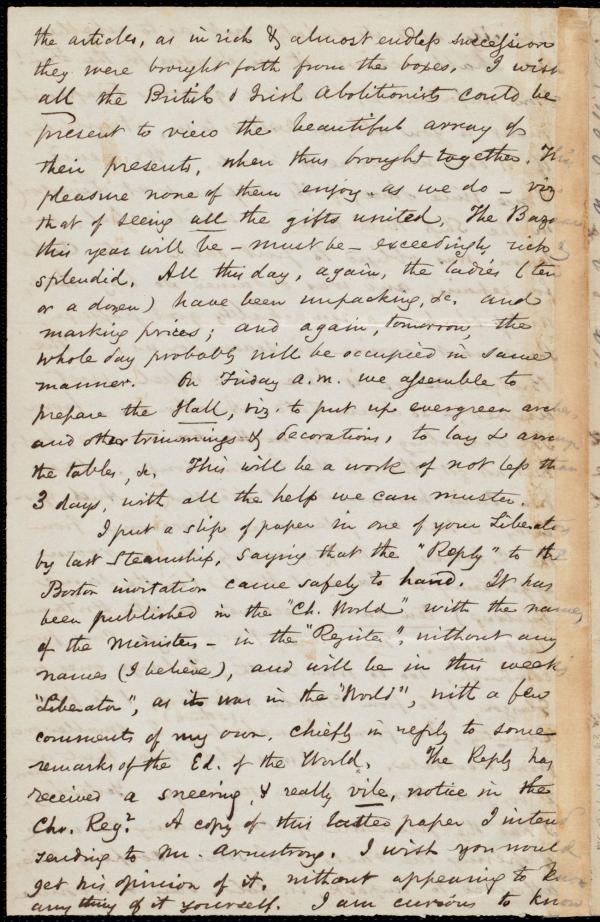 the articles, as in rich & almost endless succession
they were brought forth from the boxes. I wish
all the British & Irish Abolitionists could be
present to view the beautiful array of
their presents, when thus brought together. This
pleasure none of them enjoy as we do - viz
that of seeing all the gifts united. The Baza
this year will be - must be - exceedingly rich &
splendid. All this day, again, the ladies (ten
or a dozen) have been unpacking, &c. and
marking prices; and again, tomorrow, the
whole day probably will be occupied in same
manner. On Friday a.m. we assemble to
prepare the Hall, viz. to put up evergreen arches,
and other trimmings & decorations, to lay & arra
the tables, &c. This will be a work of not less th
3 days, with all the help we can muster.
I put a slip of paper in one of your Liberato
by last Steamship, saying that the "Reply" to the
Boston invitation came safely to hand. It has
been published in the "Ch. World" with the names
of the Ministers - in the "Register", without any
names (I believe), and will be in this week's
"Liberator", as it was in the "World", with a few
comments of my own, chiefly in reply to some
remarks of the Ed. of the World. The Reply has
received a sneering, & really vile, notice in the
Chr. Regr. A copy of this latter paper I intend
sending to Mr. Armstrong. I wish you would
get his opinion of it, without appearing to know
any thing of it yourself. I am curious to know